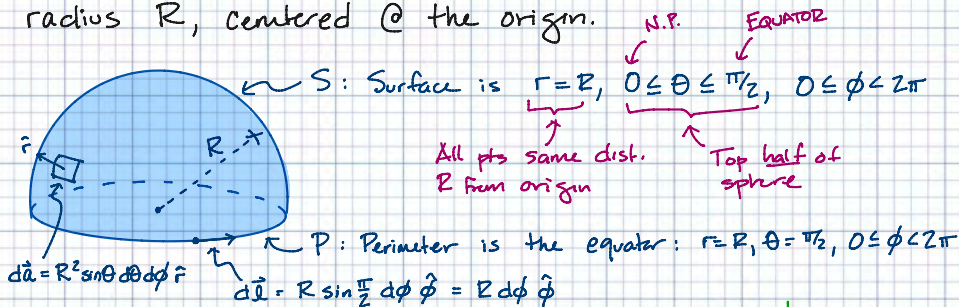 radius R, centered @ the origin.
N.P. EQUATOR
S: Surface is r=R, 0 ≤ θ ≤ π/2, 0 ≤ ϕ < 2π
r̂ R
All pts same dist. R from origin
Top half of sphere
P: Perimeter is the equator: r=R, θ=π/2, 0 ≤ ϕ < 2π
da⃗ = R² sinθ dθ dϕ r̂
dl⃗ = R sin π/2 dϕ ϕ̂ = R dϕ ϕ̂